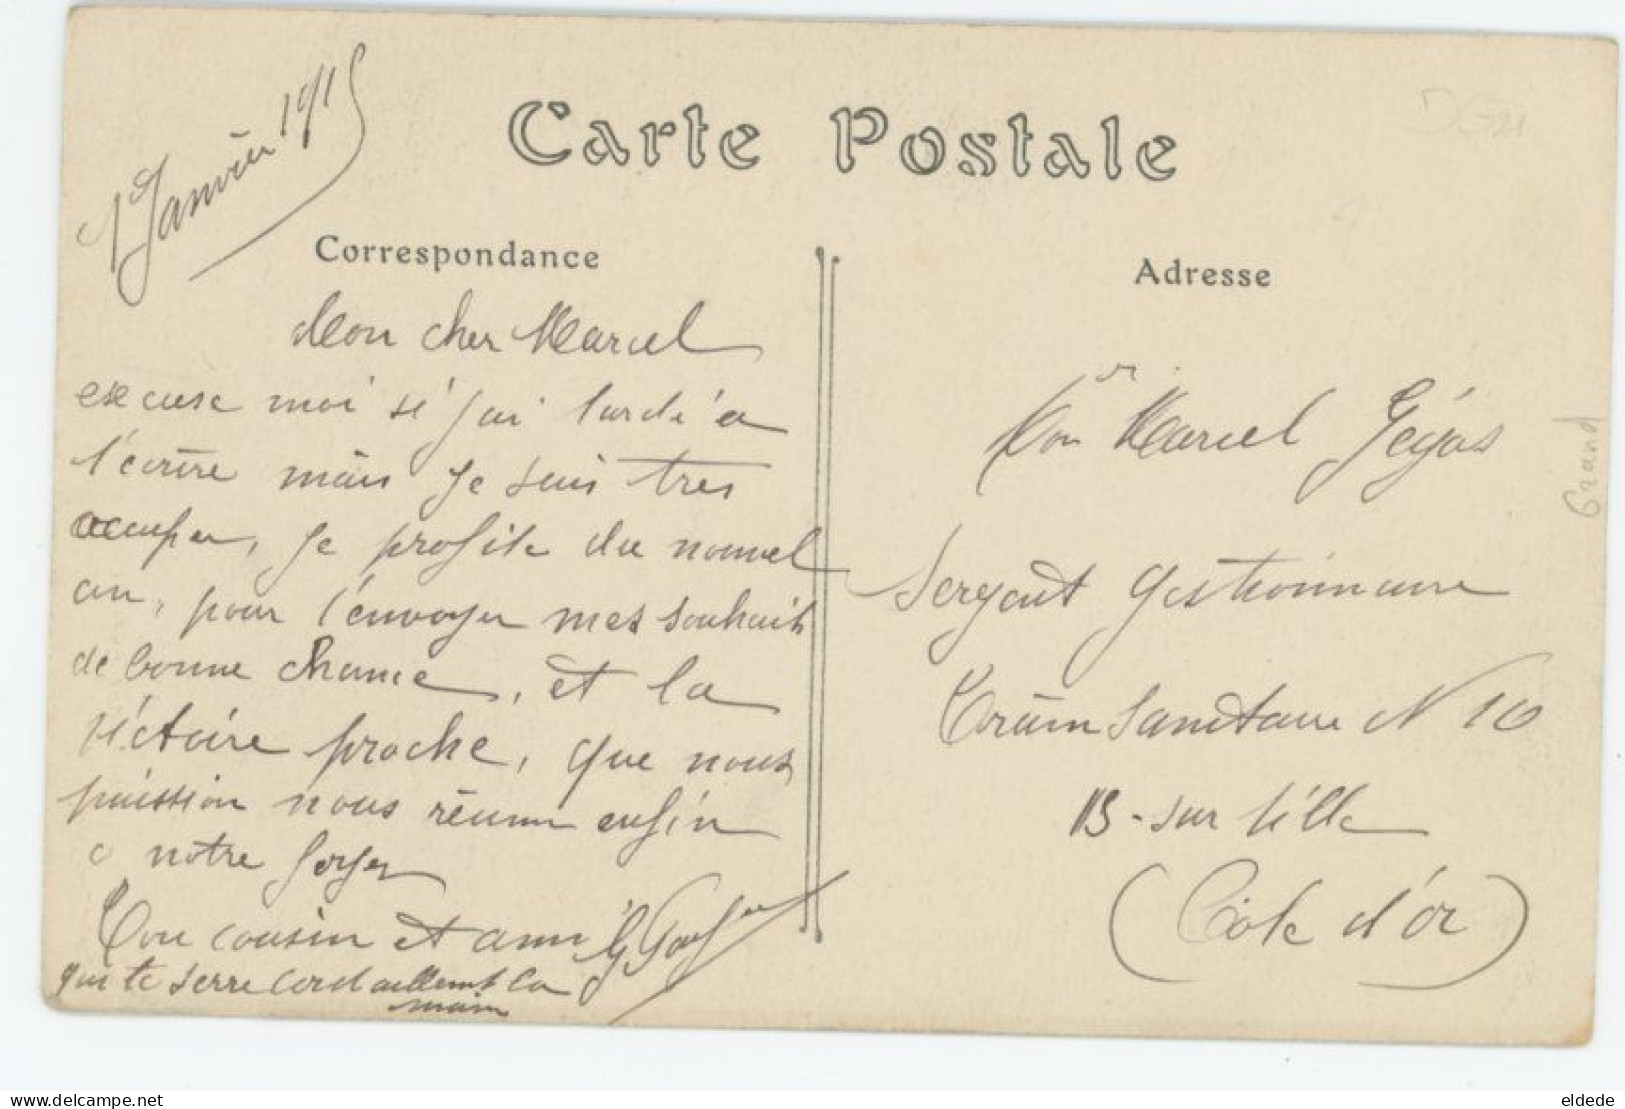 1er Janvier 1915
Carte Postale
Correspondance
Mon cher Marcel
excuse moi si j'ai tardé a
t'ecrire mais je suis tres
occuper, je profite du nouvel
an, pour t'envoyer mes souhaits
de bonne chance, et la
victoire proche, que nous
puission nous réunir enfin
a notre foyer
Ton cousin et ami G
qui te serre cordiallement la
main
Adresse
Marcel Géjas
Sergent gestionnaire
Train Sanitaire N 10
IS-sur tille
(Côte d'or)
Grand
DG21
delcampe.net
eldede